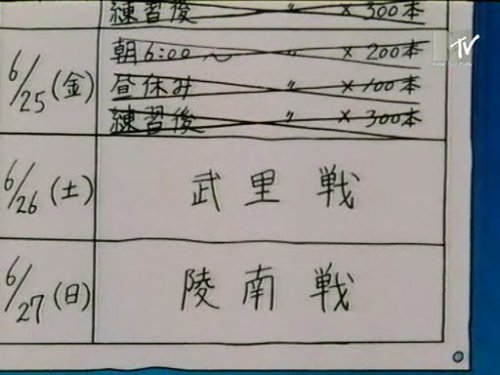 練習後 〃 × 300本
6/25(金)
朝6:00〜 〃 × 200本
昼休み 〃 × 100本
練習後 〃 × 300本
6/26(土) 武里戦
6/27(日) 陵南戦
TV